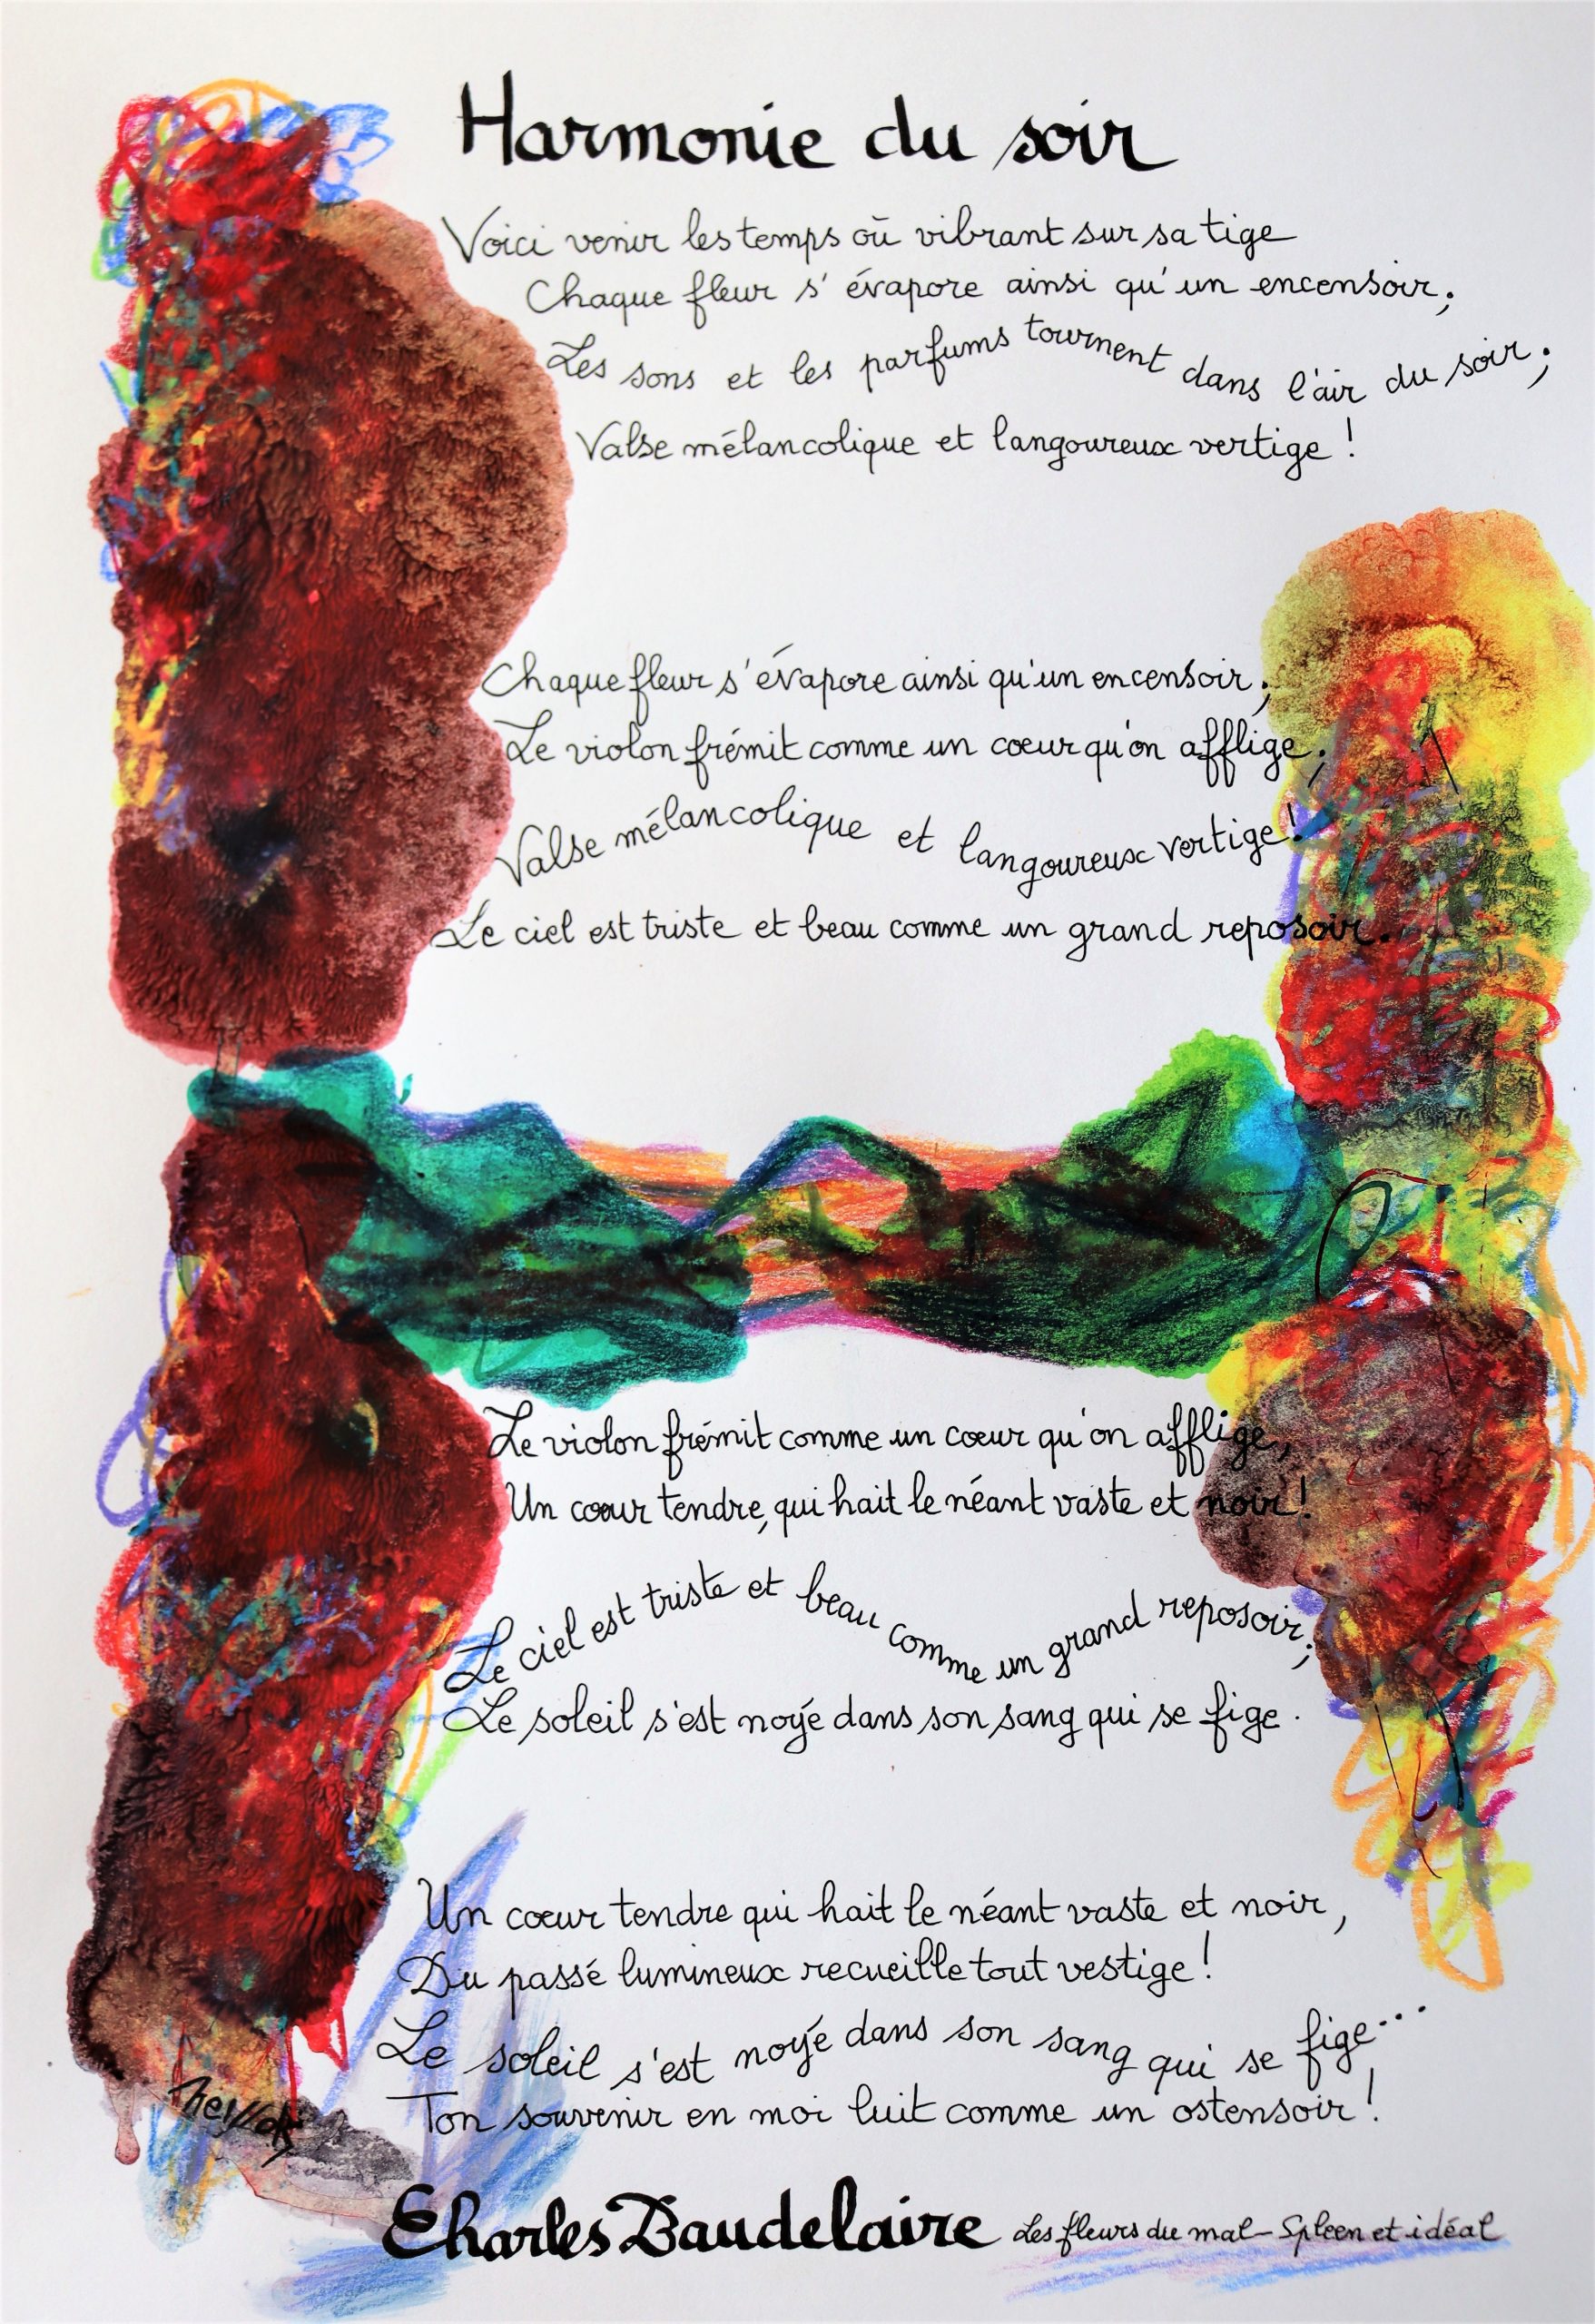 Harmonie du soir
Voici venir les temps où vibrant sur sa tige
Chaque fleur s'évapore ainsi qu'un encensoir ;
Les sons et les parfums tournent dans l'air du soir ;
Valse mélancolique et langoureux vertige !
Chaque fleur s'évapore ainsi qu'un encensoir ;
Le violon frémit comme un cœur qu'on afflige ;
Valse mélancolique et langoureux vertige !
Le ciel est triste et beau comme un grand reposoir.
Le violon frémit comme un cœur qu'on afflige,
Un cœur tendre, qui hait le néant vaste et noir !
Le ciel est triste et beau comme un grand reposoir ;
Le soleil s'est noyé dans son sang qui se fige.
Un cœur tendre qui hait le néant vaste et noir,
Du passé lumineux recueille tout vestige !
Le soleil s'est noyé dans son sang qui se fige...
Ton souvenir en moi luit comme un ostensoir !
Charles Baudelaire Les fleurs du mal - Spleen et idéal